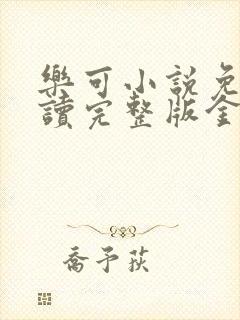 樂可小說免
讀完整版全
喬予荻